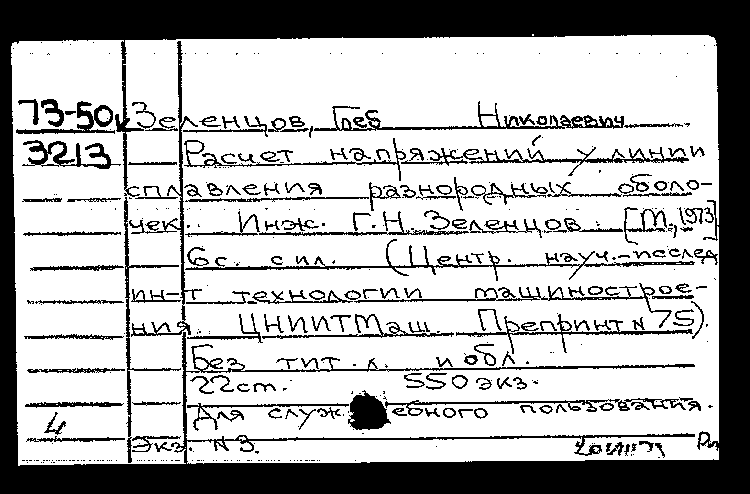 73-50 Зеленцов, Глеб Николаевич
3213 Расчет напряжений у линии
сплавления разнородных оболо-
чек. Инж. Г.Н. Зеленцов. [М, 1973]
6с. с ил. (Центр. науч.-исслед
ин-т технологии машинострое-
ния. ЦНИИТМаш. Препринт N 75).
Без тит. л. и обл.
22cm. 550 экз.
Для служебного пользования.
4
Экз. N 3.